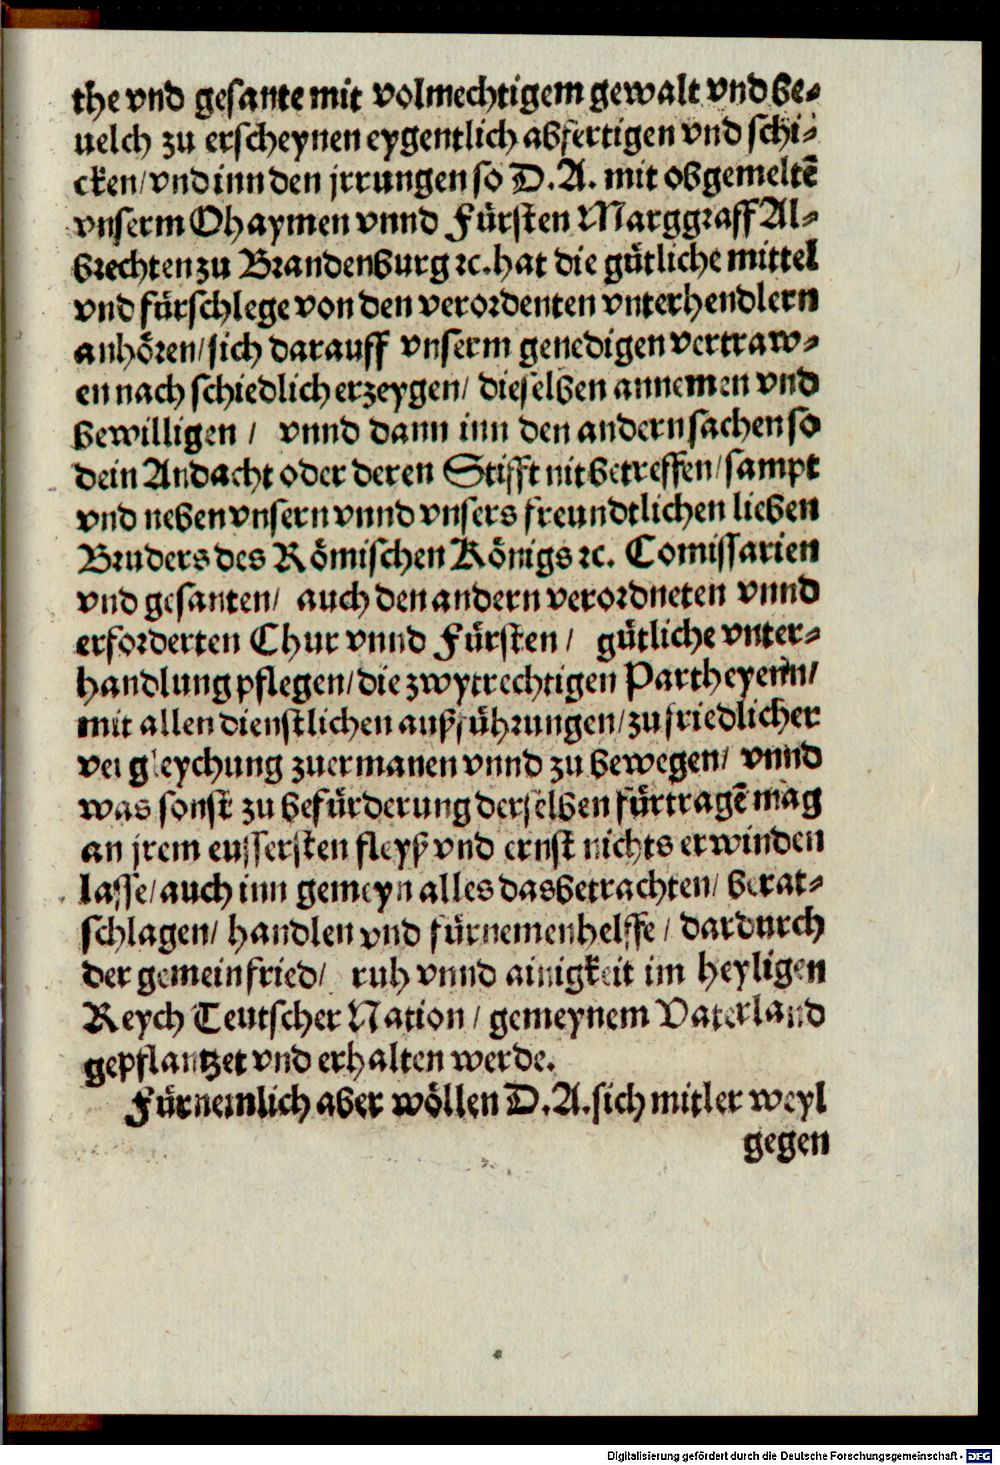 the vnd gesante mit volmechtigem gewalt vnd be-
uelch zu erscheynen eygentlich abfertigen vnd schi-
cken/ vnd inn den jrrungen so D. A. mit obgemeltē
vnserm Ohaymen vnnd Fürsten Marggraff Al-
brechten zu Brandenburg ꝛc. hat die gütliche mittel
vnd fürschlege von den verordenten vnterhendlern
anhören/ sich darauff vnserm genedigen vertraw-
en nach schiedlich erzeygen/ dieselben annemen vnd
bewilligen / vnnd dann inn den andern sachen so
dein Andacht oder deren Stifft nit betreffen/ sampt
vnd neben vnsern vnnd vnsers freundtlichen lieben
Bruders des Römischen Königs ꝛc. Comissarien
vnd gesanten/ auch den andern verordneten vnnd
erforderten Chur vnnd Fürsten / gütliche vnter-
handlung pflegen/ die zwytrechtigen Partheyenn/
mit allen dienstlichen außführungen/ zu friedlicher
vergleychung zuermanen vnnd zu bewegen/ vnnd
was sonst zu befürderung derselben fürtragē mag
an jrem eussersten fleyß vnd ernst nichts erwinden
lasse/ auch inn gemeyn alles das betrachten/ berat-
schlagen/ handlen vnd fürnemen helffe / dardurch
der gemein fried/ ruh vnnd ainigkeit im heyligen
Reych Teutscher Nation / gemeynem Vaterland
gepflantzet vnd erhalten werde.
Fürnemlich aber wöllen D. A. sich mitler weyl
gegen
Digitalisierung gefördert durch die Deutsche Forschungsgemeinschaft - DFG